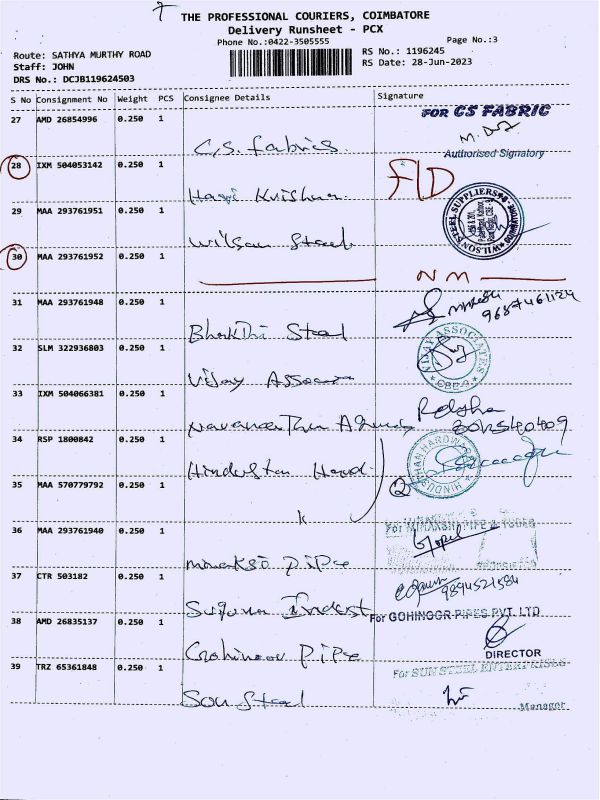 7
THE PROFESSIONAL COURIERS, COIMBATORE
Delivery Runsheet - PCX
Phone No.:0422-3505555
Page No.:3
Route: SATHYA MURTHY ROAD
RS No.: 1196245
Staff: JOHN
RS Date: 28-Jun-2023
DRS No.: DCJB119624503
S No Consignment No Weight PCS Consignee Details Signature
27 AMD 26854996 0.250 1
FOR CS FABRIC
C.S. fabrics
Authorised Signatory
28 IXM 504053142 0.250 1
F/D
Hari Krishna
29 MAA 293761951 0.250 1
WILSON STEEL SUPPLIERS
Wilson Steel
30 MAA 293761952 0.250 1
NM
31 MAA 293761948 0.250 1
9687461124
Bhakthi Steel
32 SLM 322936803 0.250 1
VIJAY ASSOCIATES
CBE-9
Vijay Assocate
33 IXM 504066381 0.250 1
34 RSP 1800842 0.250 1
HINDUSTHAN HARDWARE
Hindustan Hard
35 MAA 570779792 0.250 1
2
k
36 MAA 293761940 0.250 1
For MINAKSHI PIPE & TUBES
Gopal
minakso pipe
37 CTR 503182 0.250 1
9894521584
Suguna Indust
38 AMD 26835137 0.250 1
For GOHINOOR PIPES PVT. LTD
Gohinoor pipe
DIRECTOR
39 TRZ 65361848 0.250 1
For SUN STEEL ENTERPRISES
Son Steel
Manager